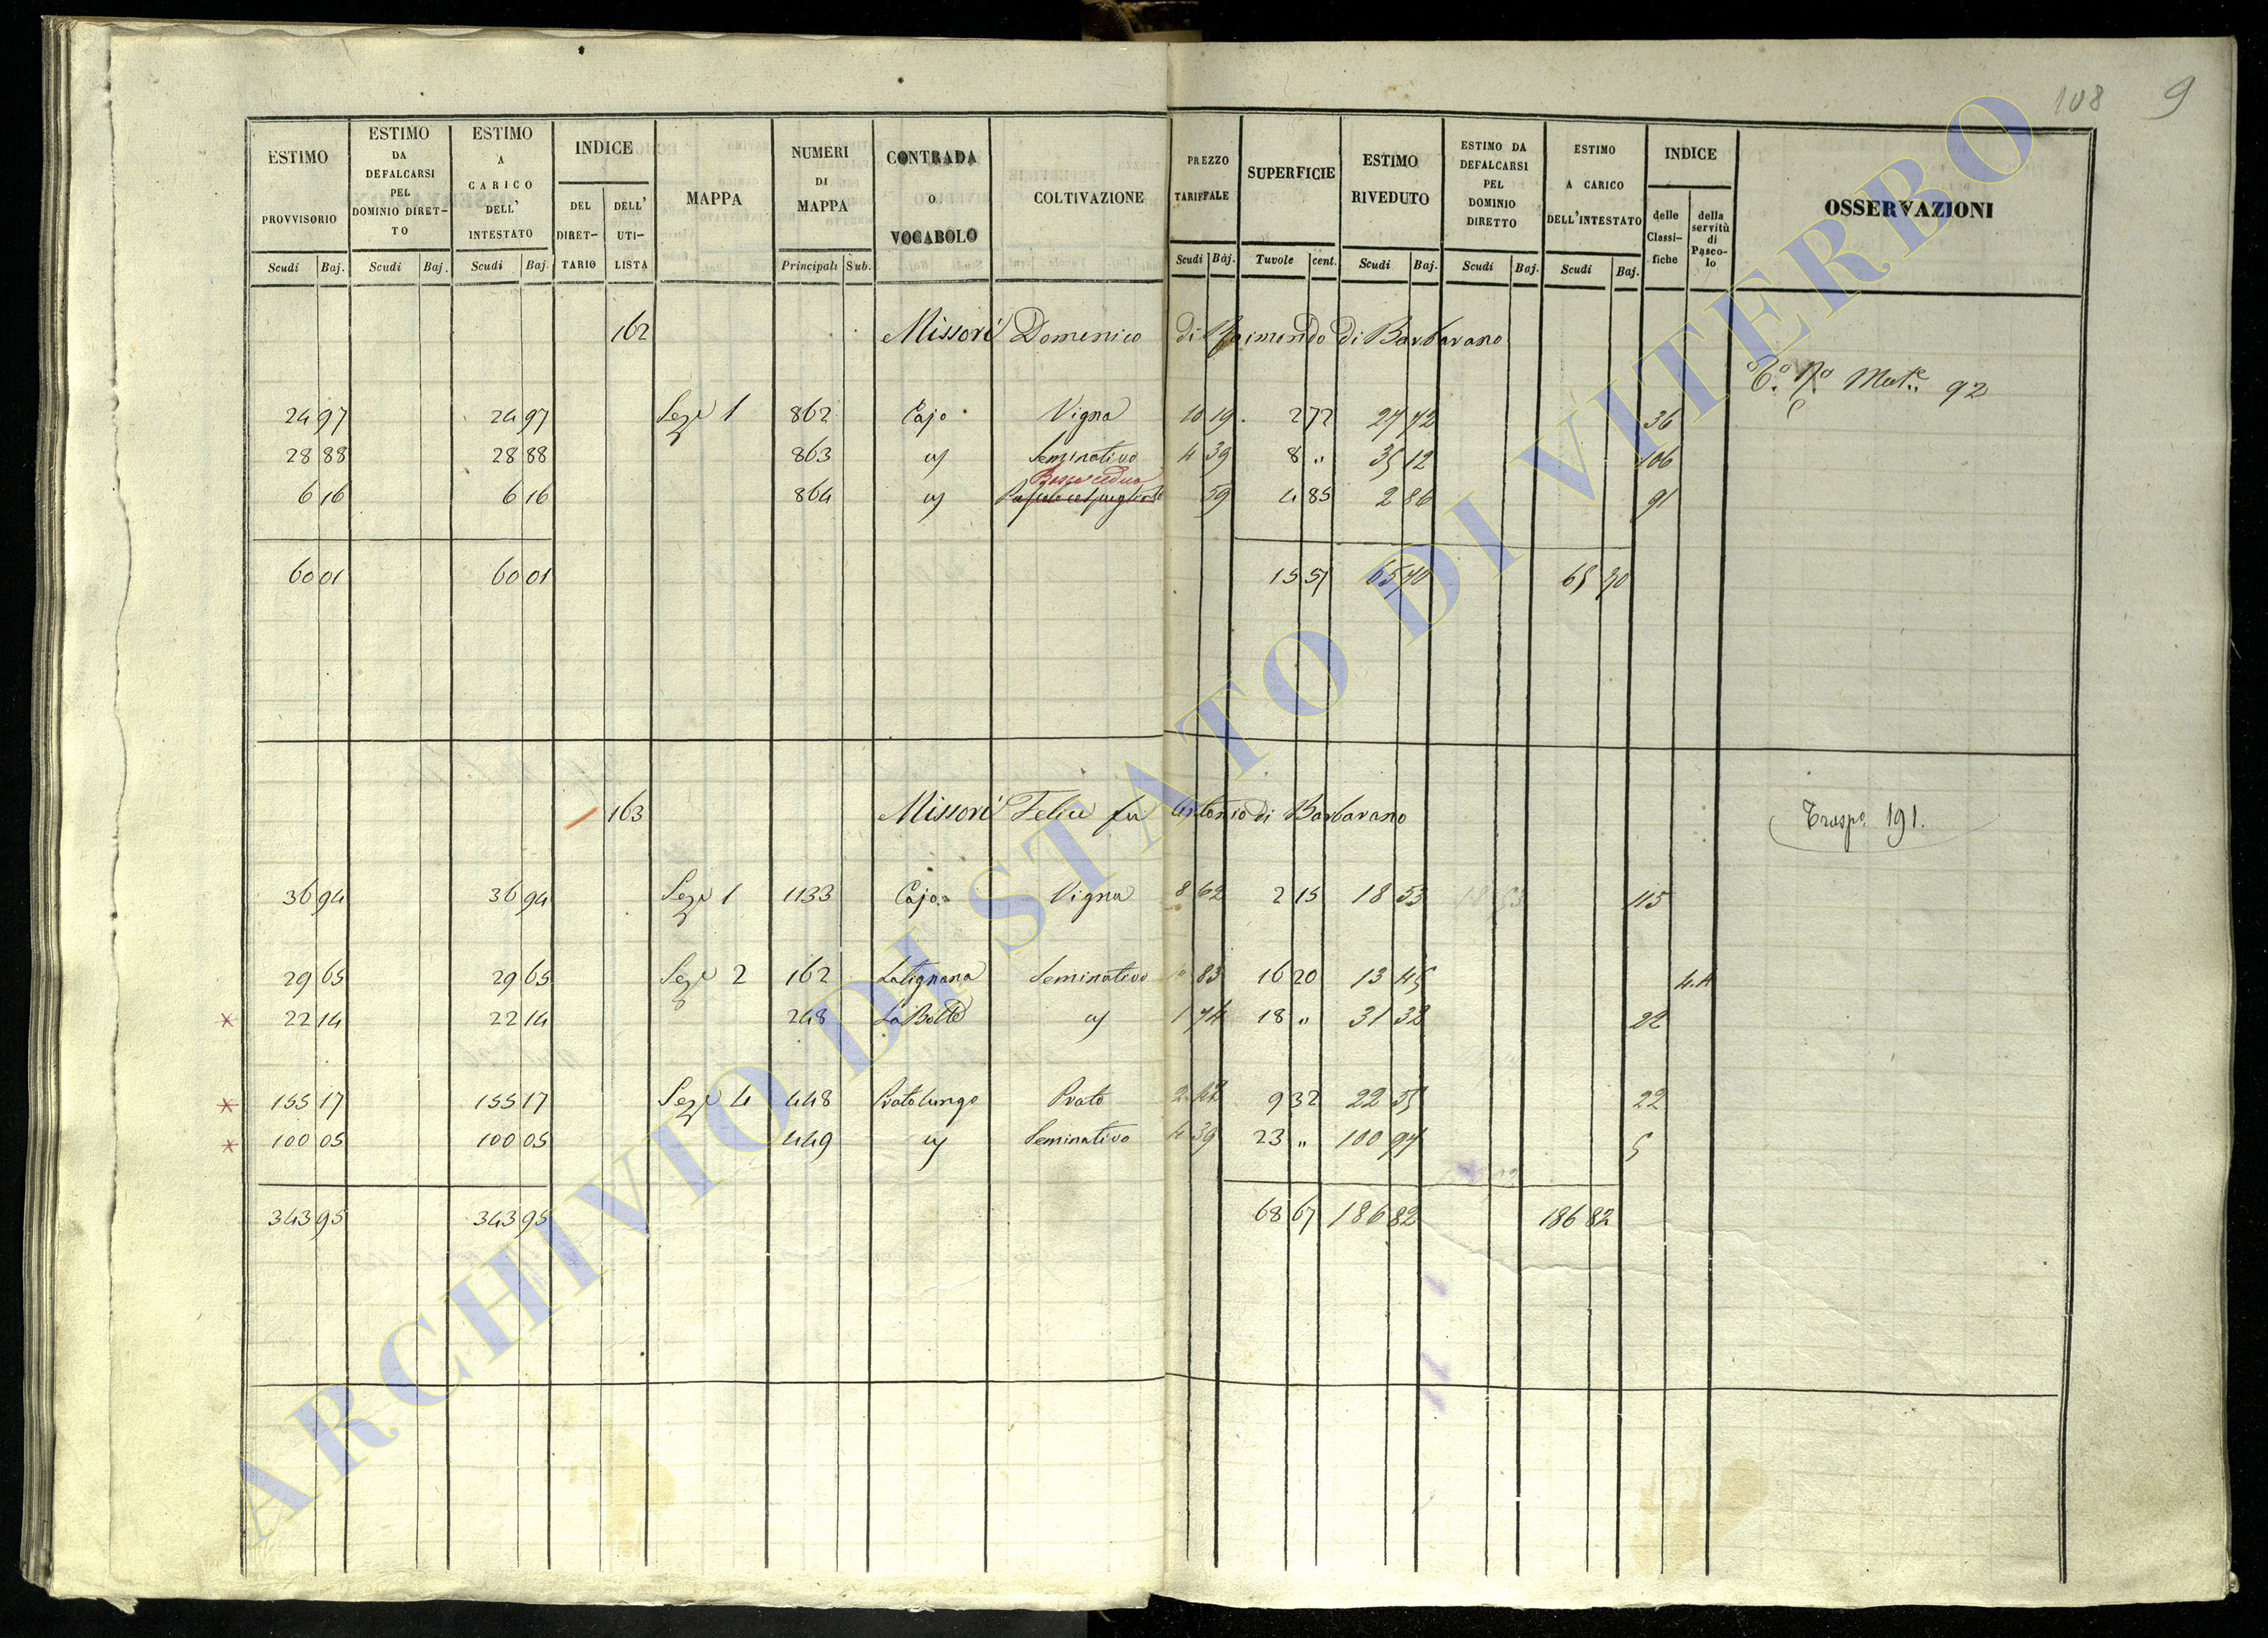 108 9
ESTIMO PROVVISORIO
ESTIMO DA DEFALCARSI PEL DOMINIO DIRET- TO
ESTIMO A CARICO DELL' INTESTATO
INDICE
DEL DIRET- TARIO
DELL' UTI- LISTA
MAPPA
NUMERI DI MAPPA
CONTRADA O VOCABOLO
COLTIVAZIONE
PREZZO TARIFFALE
SUPERFICIE
ESTIMO RIVEDUTO
ESTIMO DA DEFALCARSI PEL DOMINIO DIRETTO
ESTIMO A CARICO DELL'INTESTATO
INDICE
delle Classi- fiche
della servitù di Pasco- lo
OSSERVAZIONI
Scudi Baj. Scudi Baj. Scudi Baj. Principali Sub. Scudi Baj. Tavole cent. Scudi Baj. Scudi Baj. Scudi Baj.
162 Missori Domenico di Raimondo di Barbarano
92
24 97 24 97 Seze 1 862 Cajo Vigna 10 19 2 72 27 72 36
28 88 28 88 863 " Seminativo 4 39 8 " 35 12 106
Bosco ceduo
6 16 6 16 864 " Pascolo cespugliato 59 4 85 2 86 91
60 01 60 01 15 57 65 70 65 70
163 Missori Felice fu Antonio di Barbarano Traspo. 191.
36 94 36 94 Seze 1 1133 Cajo Vigna 8 62 2 15 18 53 18 53 115
29 65 29 65 Seze 2 162 Latignana Seminativo 83 16 20 13 45 4.4
22 14 22 14 248 La Botte " 1 74 18 " 31 32 22
155 17 155 17 Seze 4 448 Pratolungo Prato 2 42 9 32 22 55 22
100 05 100 05 449 " Seminativo 4 39 23 " 100 97 5
343 95 343 95 68 67 186 82 186 82
ARCHIVIO DI STATO DI VITERBO